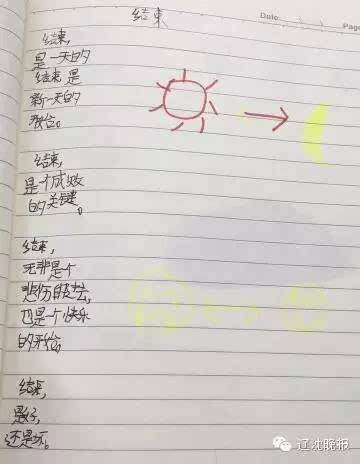 结束
Date.
Page
结束,
是一天的
结束是
新一天的
开始。
结束,
是个成败
的关键。
结束,
无非是个
悲伤的过去,
也是个快乐
的开始,
结束,
是好,
还是坏。
辽沈晚报